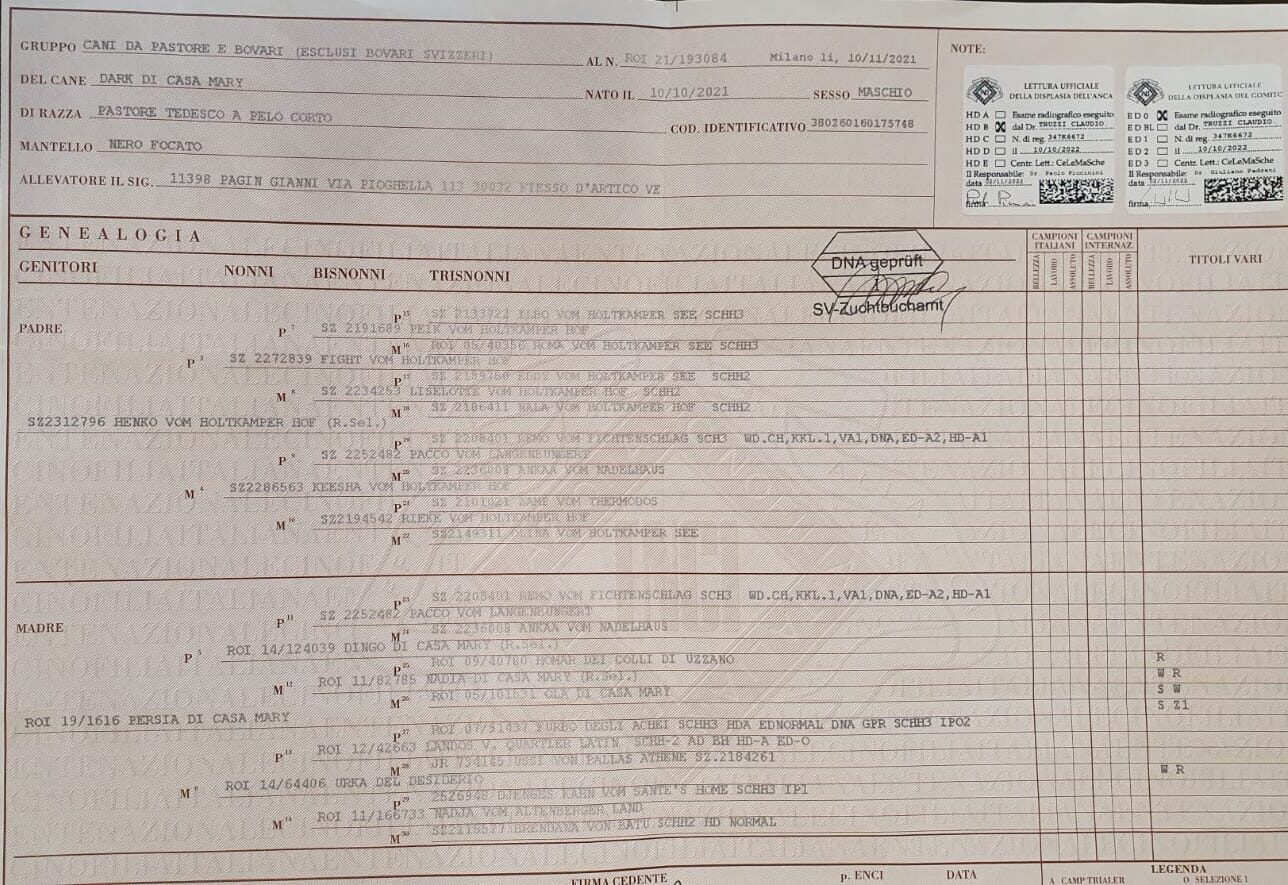 GRUPPO CANI DA PASTORE E BOVARI (ESCLUSI BOVARI SVIZZERI) AL N. ROI 21/193084 Milano lì, 10/11/2021
DEL CANE DARK DI CASA MARY NATO IL 10/10/2021 SESSO MASCHIO
DI RAZZA PASTORE TEDESCO A PELO CORTO COD. IDENTIFICATIVO 380260160175748
MANTELLO NERO FOCATO
ALLEVATORE IL SIG. 11398 PAGIN GIANNI VIA PIOGHELLA 113 30032 FIESSO D'ARTICO VE
NOTE:
LETTURA UFFICIALE
DELLA DISPLASIA DELL'ANCA
HD A Esame radiografico eseguito
HD B X dal Dr. TRUZZI CLAUDIO
HD C N. di reg. 347K6672
HD D il 10/10/2022
HD E Centr. Lett.: CeLeMaSche
Il Responsabile: Dr. Paolo Piccinini
data 02/11/2022
firma
LETTURA UFFICIALE
DELLA DISPLASIA DEL GOMITO
ED 0 X Esame radiografico eseguito
ED BL dal Dr. TRUZZI CLAUDIO
ED 1 N. di reg. 347K6672
ED 2 il 10/10/2022
ED 3 Centr. Lett.: CeLeMaSche
Il Responsabile: Dr. Giuliano Pedrani
data 02/11/2022
firma
GENEALOGIA
GENITORI NONNI BISNONNI TRISNONNI
DNA geprüft
SV-Zuchtbuchamt
CAMPIONI ITALIANI CAMPIONI INTERNAZ.
BELLEZZA LAVORO ASSOLUTO BELLEZZA LAVORO ASSOLUTO
TITOLI VARI
PADRE
P 15 SZ 2133722 ELBO VOM HOLTKAMPER SEE SCHH3
P 7 SZ 2191689 PEIK VOM HOLTKAMPER HOF
M 16 ROI 05/40356 ROMA VOM HOLTKAMPER SEE SCHH3
P 3 SZ 2272839 FIGHT VOM HOLTKAMPER HOF
P 17 EDDY VOM HOLTKAMPER SEE SCHH2
M 8 SZ 2234253 LISELOTTE VOM HOLTKAMPER HOF SCHH2
M 18 SZ 2186411 NALA VOM HOLTKAMPER HOF SCHH2
SZ2312796 HENKO VOM HOLTKAMPER HOF (R.Sel.)
P 19 SZ 2208401 REMO VOM FICHTENSCHLAG SCH3 WD.CH,KKL.1,VA1,DNA,ED-A2,HD-A1
P 9 SZ 2252482 PACCO VOM LANGENBUNGERT
M 20 SZ 2236008 ANKAA VOM NADELHAUS
M 4 SZ2286563 KEESHA VOM HOLTKAMPER HOF
P 21 SZ 2101021 ZAMB VOM THERMODOS
M 10 SZ2194542 RIEKE VOM HOLTKAMPER HOF
M 22 SZ2149311 OLINA VOM HOLTKAMPER SEE
P 23 SZ 2208401 REMO VOM FICHTENSCHLAG SCH3 WD.CH,KKL.1,VA1,DNA,ED-A2,HD-A1
P 11 SZ 2252482 PACCO VOM LANGENBUNGERT
MADRE
M 24 SZ 2236008 ANKAA VOM NADELHAUS
P 5 ROI 14/124039 DINGO DI CASA MARY (R.Sel.)
P 25 ROI 09/40780 HOMAR DEI COLLI DI UZZANO R
M 12 ROI 11/82785 NADIA DI CASA MARY (R.Sel.) W R
M 26 ROI 05/101531 OLA DI CASA MARY S W
ROI 19/1616 PERSIA DI CASA MARY S Z1
P 27 ROI 07/51437 YURBO DEGLI ACHEI SCHH3 HDA EDNORMAL DNA GPR SCHH3 IPO2
P 13 ROI 12/42663 LANDOS V. QUARTIER LATIN SCHH-2 AD BH HD-A ED-O
M 28 JR 734145 USSI VON PALLAS ATHENE SZ.2184261
M 6 ROI 14/64406 URKA DEL DESIDERIO W R
P 29 2526948 DJENGES KAHN VOM SANTE'S HOME SCHH3 IP1
M 14 ROI 11/166733 NADJA VOM ALTENBERGER LAND
M 30 SZ2118577 BRENDANA VON BATU SCHH2 HD NORMAL
FIRMA CEDENTE p. ENCI DATA LEGENDA
A CAMP.TRIALER O SELEZIONE 1